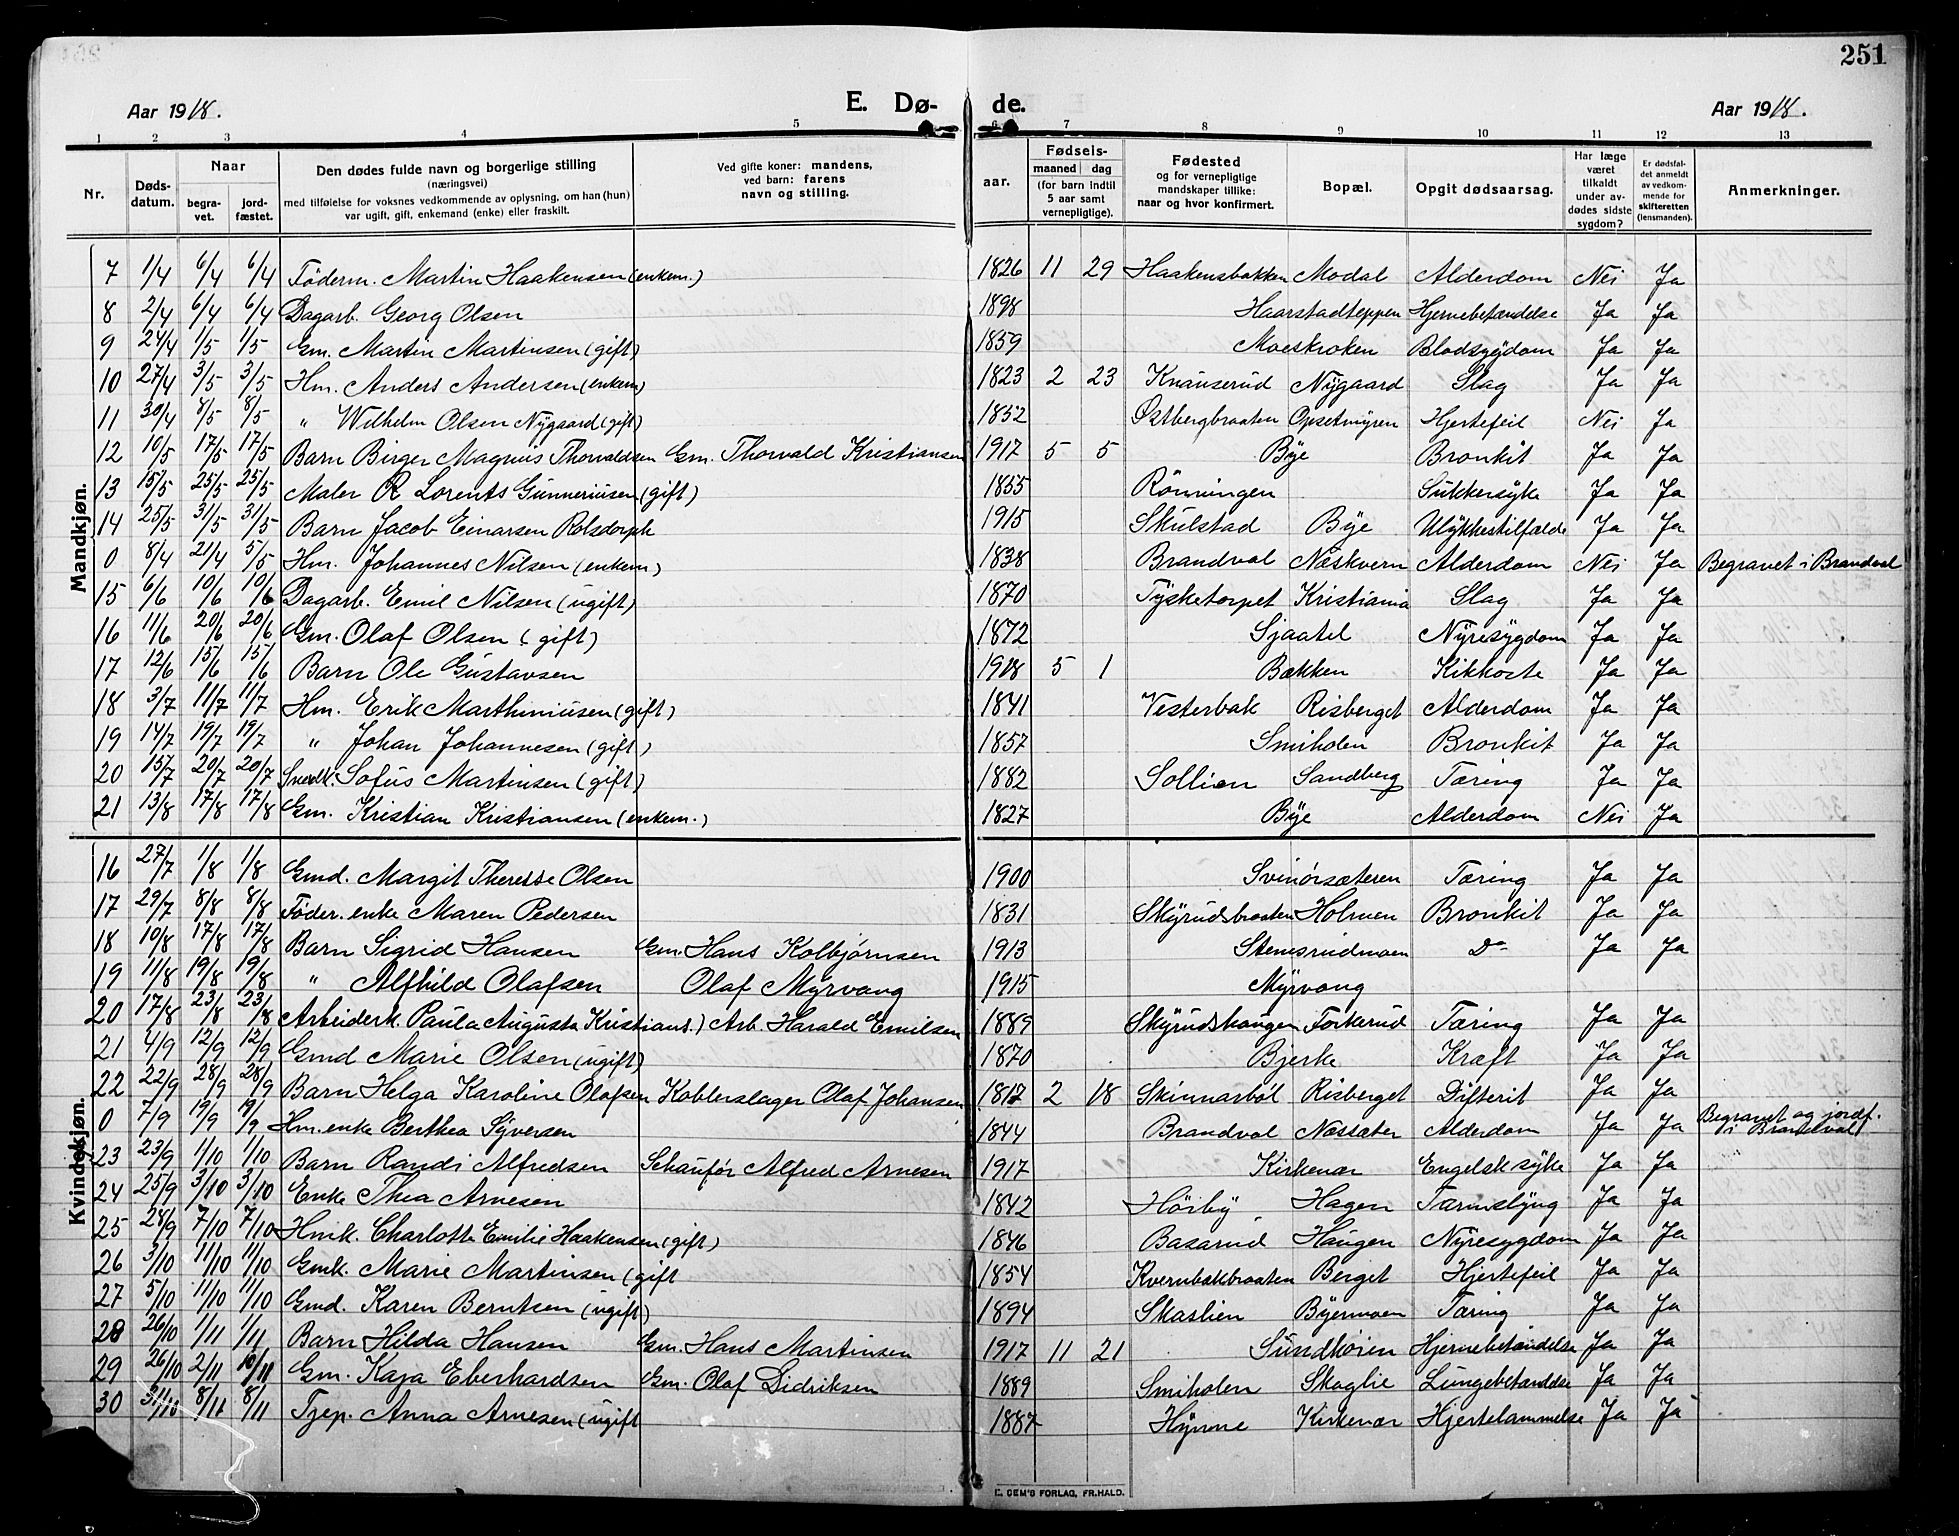 251
Aar 1918. E. Dø- de. Aar 1918.
1 2 3 4 5 6 7 8 9 10 11 12 13
Nr. Døds-datum. Naar begra-vet. jord-fæstet. Den dødes fulde navn og borgerlige stilling (næringsvei) med tilføielse for voksnes vedkommende av oplysning, om han (hun) var ugift, gift, enkemand (enke) eller fraskilt. Ved gifte koner: mandens, ved barn: farens navn og stilling. aar. Fødsels- maaned dag (for barn indtil 5 aar samt vernepligtige). Fødested og for vernepligtige mandskaper tillike: naar og hvor konfirmert. Bopæl. Opgit dødsaarsag. Har læge været tilkaldt under av-dødes sidste sygdom? Er dødsfal-det anmeldt av vedkom-mende for skifteretten (lensmanden). Anmerkninger.
Mandkjøn.
7 1/4 6/4 6/4 Föderm. Martin Haakensen (enkem.) 1826 11 29 Haakensbakken Modal Alderdom Nei Ja
8 2/4 6/4 6/4 Dagarb. Georg Olsen 1898 Haarstadteppen Hjernebetændelse Ja Ja
9 24/4 1/5 1/5 Gm. Martin Martinsen (gift) 1859 Moeskroken Blodsygdom Ja Ja
10 27/4 3/5 3/5 Hm. Anders Andersen (enkem) 1823 2 23 Knauserud Nygaard Slag Ja Ja
11 30/4 8/5 8/5 " Wilhelm Olsen Nygaard (gift) 1852 Østbergbraaten Opsetmyren Hjertefeil Nei Ja
12 10/5 17/5 17/5 Barn Birger Magnus Thorvaldsen Gm. Thorvald Kristiansen 1917 5 5 Bye Bronkit Ja Ja
13 15/5 25/5 25/5 Maler R Lorents Gunneriusen (gift) 1855 Rönningen Sukkersyke Ja Ja
14 25/5 31/5 31/5 Barn Jacob Einarsen Rolsdorph 1915 Skulstad Bye Ulykkestilfælde Ja Ja
0 8/4 21/4 5/5 Hm. Johannes Nilsen (enkem) 1838 Brandval Næskvern Alderdom Nei Ja Begravet i Brandval
15 6/6 10/6 10/6 Dagarb. Emil Nilsen (ugift) 1870 Tysketorpet Kristiania Slag Ja Ja
16 11/6 20/6 20/6 Gm. Olaf Olsen (gift) 1872 Sjaatel Nyresygdom Ja Ja
17 12/6 15/6 15/6 Barn Ole Gustavsen 1918 5 1 Bækken Kikhoste Ja Ja
18 3/7 11/7 11/7 Hm. Erik Marthiniusen (gift) 1841 Vesterbak Risberget Alderdom Ja Ja
19 14/7 19/7 19/7 " Johan Johannesen (gift) 1857 Smiholen Bronkit Ja Ja
20 15/7 20/7 20/7 Snedk. Sofus Martinsen (gift) 1882 Sollien Sandberg Tæring Ja Ja
21 13/8 17/8 17/8 Gm. Kristian Kristiansen (enkem.) 1827 Bye Alderdom Nei Ja
Kvindekjøn.
16 27/7 1/8 1/8 Gmd. Margit Therese Olsen 1900 Svinörsæteren Tæring Ja Ja
17 29/7 8/8 8/8 Föder. enke Maren Pedersen 1831 Skyrudsbraaten Holmen Bronkit Ja Ja
18 10/8 17/8 17/8 Barn Sigrid Hansen Gm. Hans Kolbjørnsen 1913 Stensrudmoen Do Ja Ja
19 11/8 19/8 19/8 " Alfhild Olafsen Olaf Myrvang 1915 Myrvang
20 17/8 23/8 23/8 Arbeiderk. Paula Augusta Kristians.) Arb. Harald Emilsen 1889 Skyrudshaugen Forkerud Tæring Ja Ja
21 4/9 12/9 12/9 Gmd Marie Olsen (ugift) 1870 Bjerke Kræft Ja Ja
22 22/9 28/9 28/9 Barn Helga Karoline Olafsen Kobberslager Olaf Johansen 1817 2 18 Skinnarböl Risberget Difterit Ja Ja
0 7/9 19/9 19/9 Hm. enke Berthea Syversen 1844 Brandval Næssæter Alderdom Ja Ja Begravet og jordf. i Brandval
23 23/9 1/10 1/10 Barn Randi Alfredsen Schauför Alfred Arnesen 1917 Kirkenær Engelsk syke Ja Ja
24 25/9 3/10 3/10 Enke Thea Arnesen 1842 Høiby Hagen Tarmslyng Ja Ja
25 28/9 7/10 7/10 Hmk. Charlotte Emilie Haakensen (gift) 1846 Basarud Haugen Nyresygdom Ja Ja
26 3/10 11/10 11/10 Gmk. Marie Martinsen (gift 1854 Kvernbækbraaten Berget Hjertefeil Ja Ja
27 5/10 11/10 11/10 Gmd. Karen Berntsen (ugift) 1894 Skaslien Byermoen Tæring Ja Ja
28 26/10 1/11 1/11 Barn Hilda Hansen Gm. Hans Martinsen 1917 11 21 Sundhöien Hjernebetændelse Ja Ja
29 26/10 2/11 10/11 Gm. Kaja Eberhardsen Gm. Olaf Didriksen 1889 Smiholen Skaglie Lungebetændelse Ja Ja
30 31/10 8/11 8/11 Tjep. Anna Arnesen (ugift 1887 Hynne Kirkenær Hjertelammelse Ja Ja
E. SEM'S FORLAG, FR.HALD.